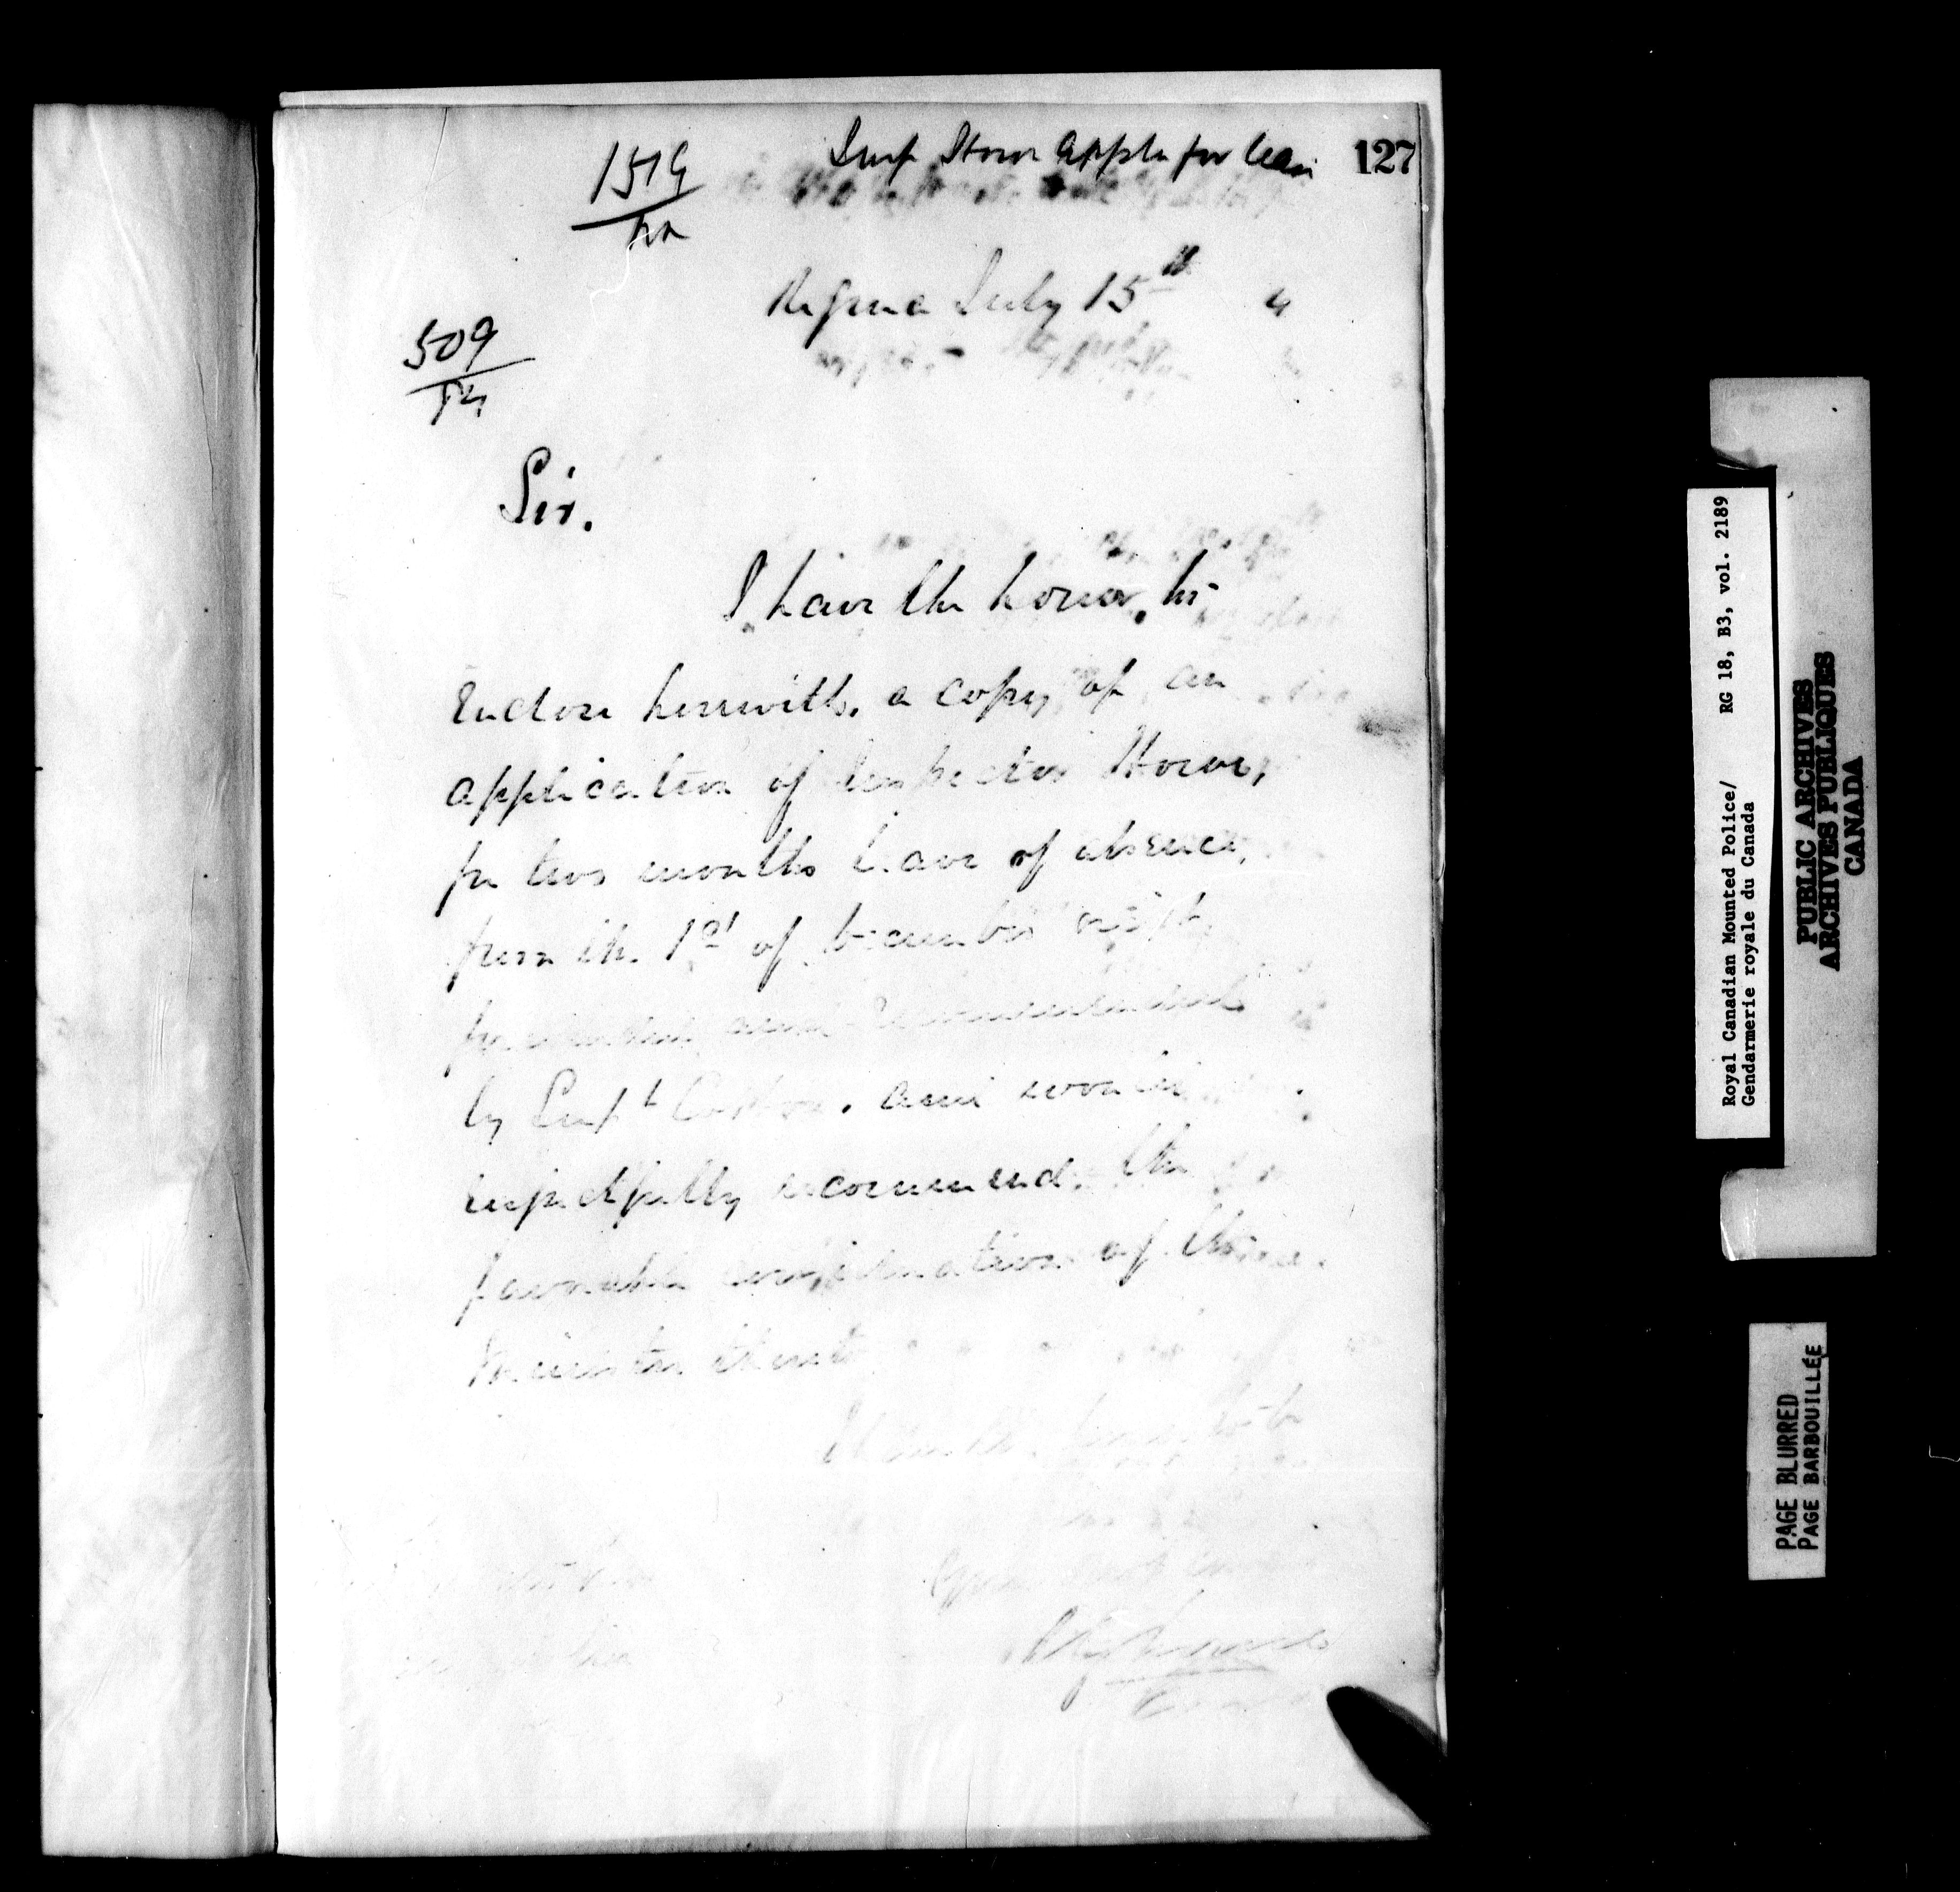 127
Insp Howe Appln for leave
1519
509
84
Regina July 15th 4
Sir.
I have the honor, to
Enclose herewith, a copy of an
application of Inspector Howe,
for two months leave of absence,
from the 1st of December next,
forwarded and recommended
by Supt Cotton. and would
respectfully recommend, the
favorable consideration of the
Minister thereto
I have the honor to be
Royal Canadian Mounted Police/ RG 18, B3, vol. 2189
Gendarmerie royale du Canada
PUBLIC ARCHIVES
ARCHIVES PUBLIQUES
CANADA
PAGE BLURRED
PAGE BARBOUILLÉE